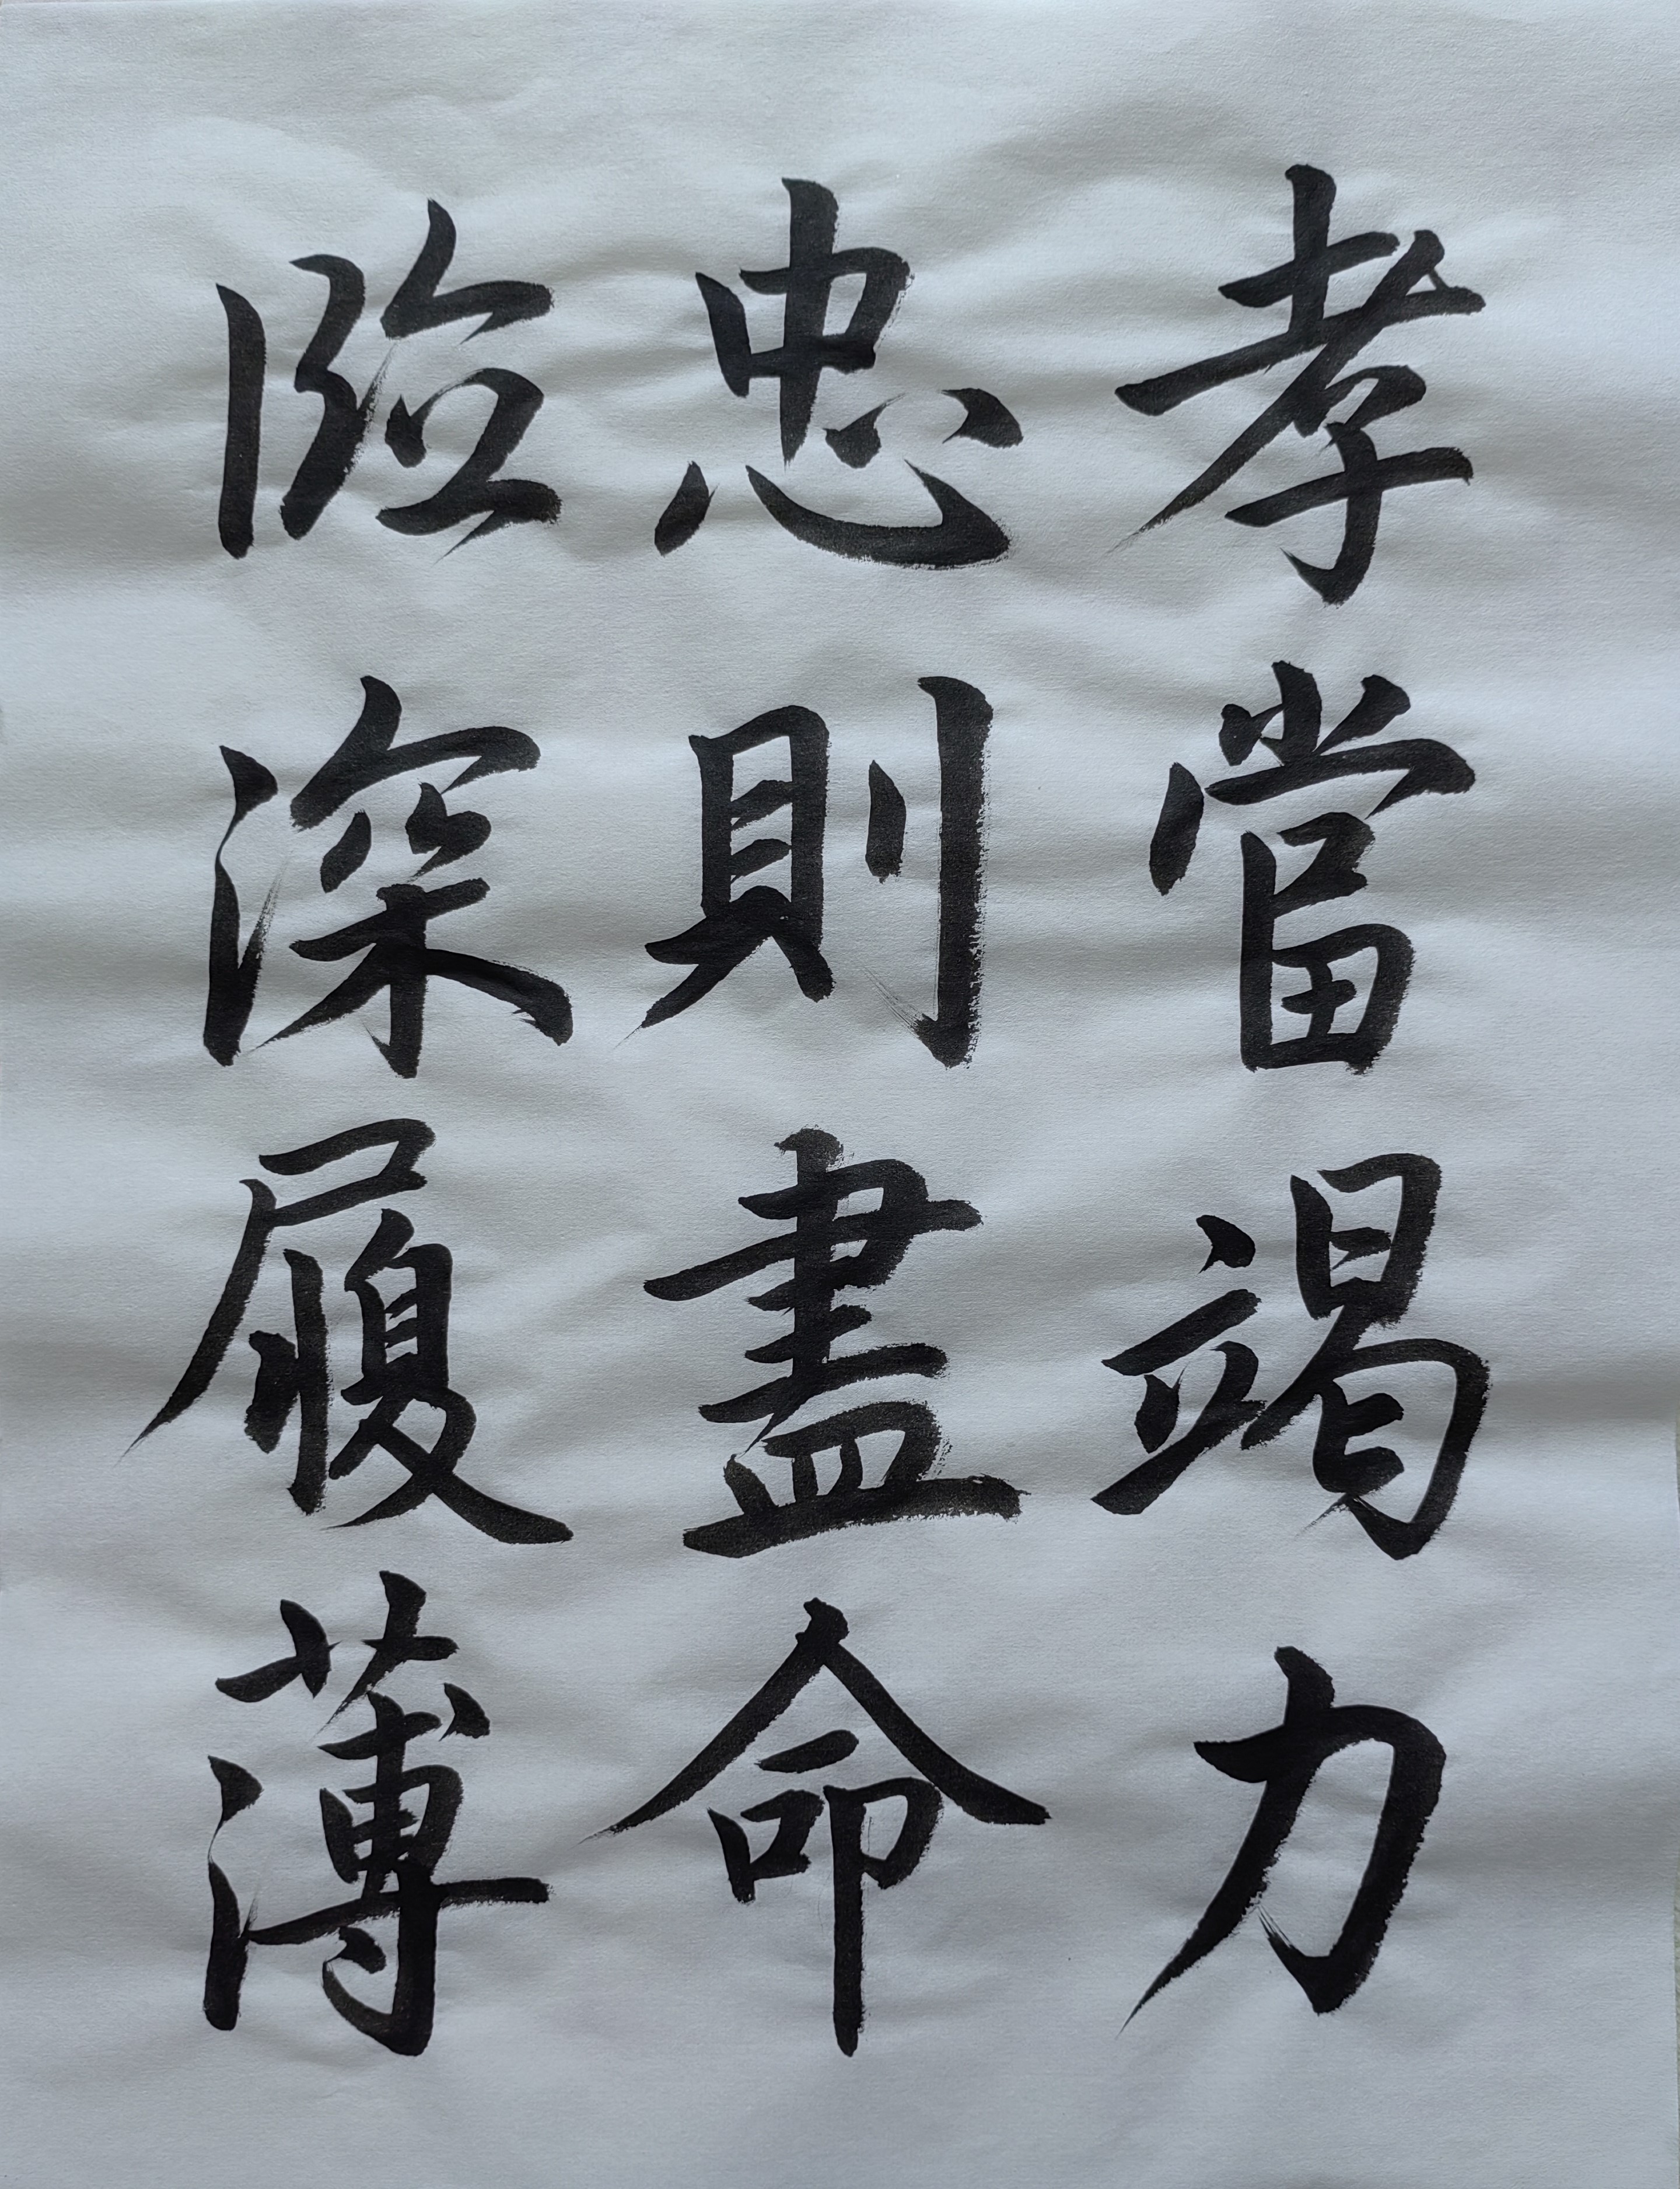 孝當竭力
忠則盡命
臨深履薄